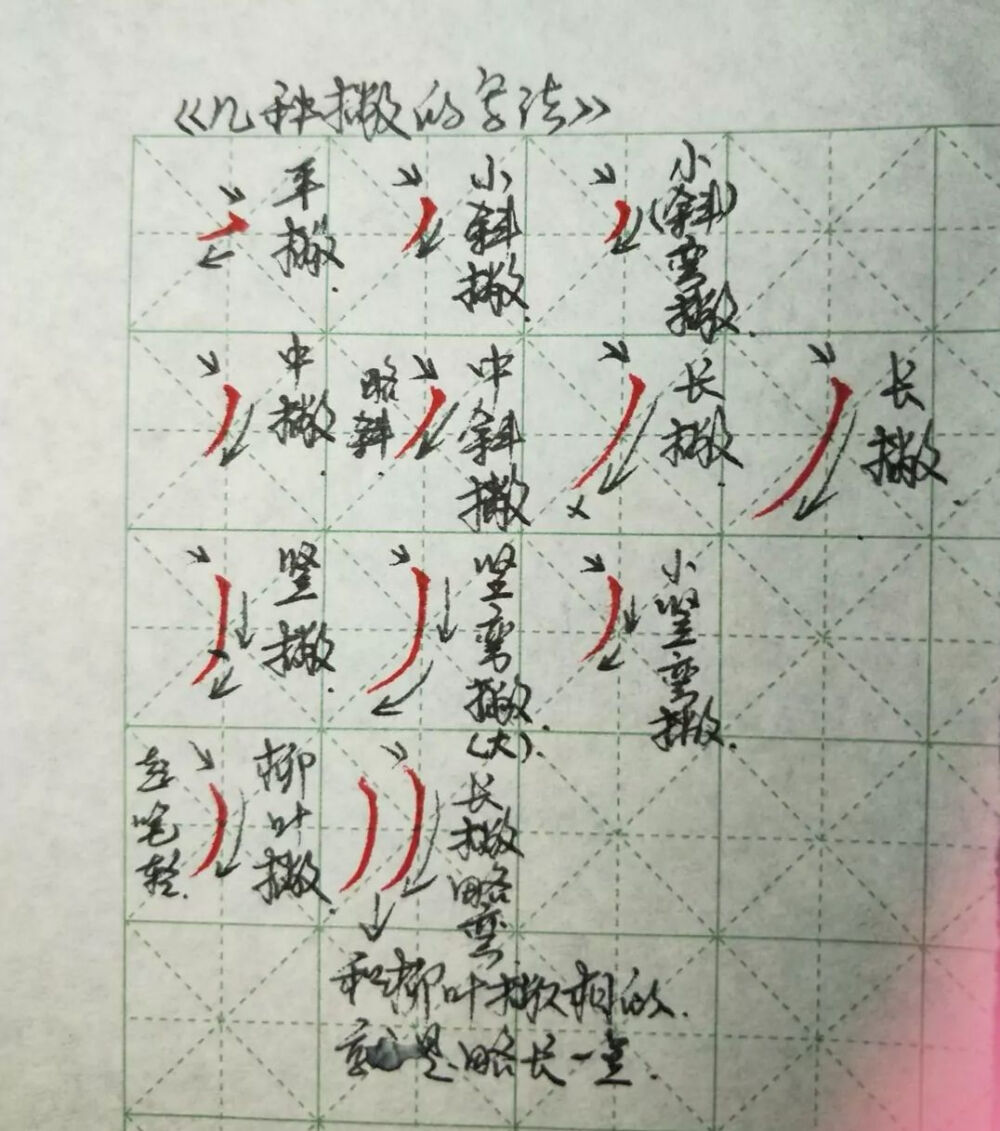 《几种撇的写法》
平撇.
小斜撇.
小(斜)弯撇.
中撇.
略斜
中斜撇
长撇.
长撇.
竖撇.
竖弯撇(大).
小竖弯撇.
起笔轻.
柳叶撇.
长撇略弯.
和柳叶撇相似.
就是略长一点.